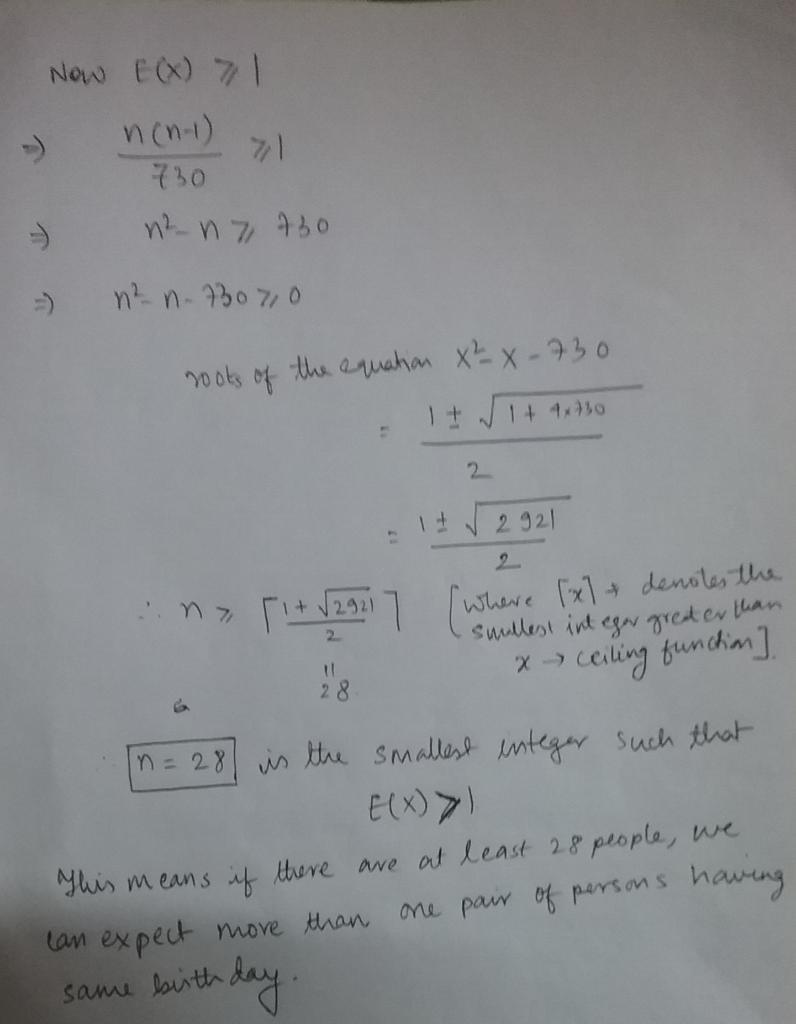 Now E(X) ⩾ 1
⇒ n(n-1)/730 ⩾ 1
⇒ n² - n ⩾ 730
⇒ n² - n - 730 ⩾ 0
roots of the equation x² - x - 730
= (1 ± √(1 + 4×730))/2
= (1 ± √2921)/2
∴ n ⩾ ⌈(1 + √2921)/2⌉ [where ⌈x⌉ → denotes the
smallest integer greater than
x → ceiling function].
=
28
∴ n = 28 is the smallest integer such that
E(X) ⩾ 1
This means if there are at least 28 people, we
can expect more than one pair of persons having
same birthday.